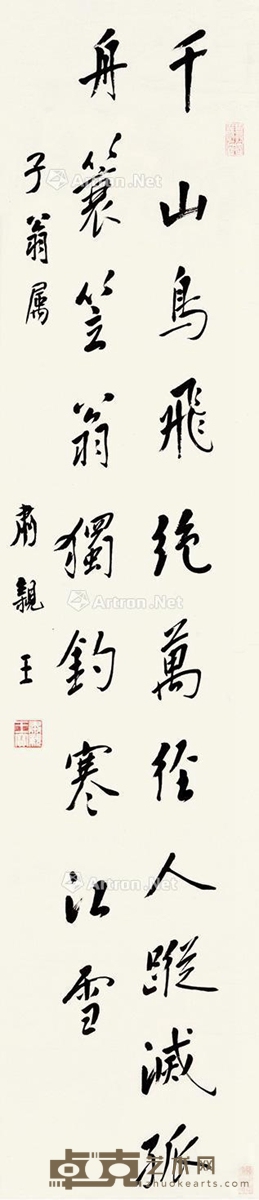 千山鳥飛絕萬徑人蹤滅孤
舟簑笠翁獨釣寒江雪
子翁属
肅親王
Artron.Net
Artron.Net
Artron.Net
卓克艺术网
manuokearts.com